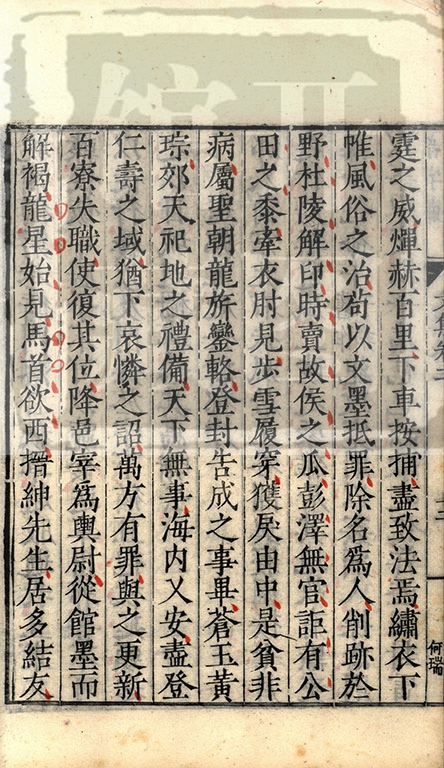 霆之威燀赫百里下車按捕盡致法焉繡衣下
帷風俗之治苟以文墨抵罪除名爲人削跡於
野杜陵解印時賣故侯之瓜彭澤無官詎有公
田之黍牽衣肘見步雪履穿獲戾由中是貧非
病屬聖朝龍旂鑾輅登封告成之事畢蒼玉黃
琮郊天祀地之禮備天下無事海内乂安盡登
仁壽之域猶下哀憐之詔萬方有罪與之更新
百寮失職使復其位降邑宰爲輿尉從館墨而
解褐龍星始見馬首欲西搢紳先生居多結友
何瑞